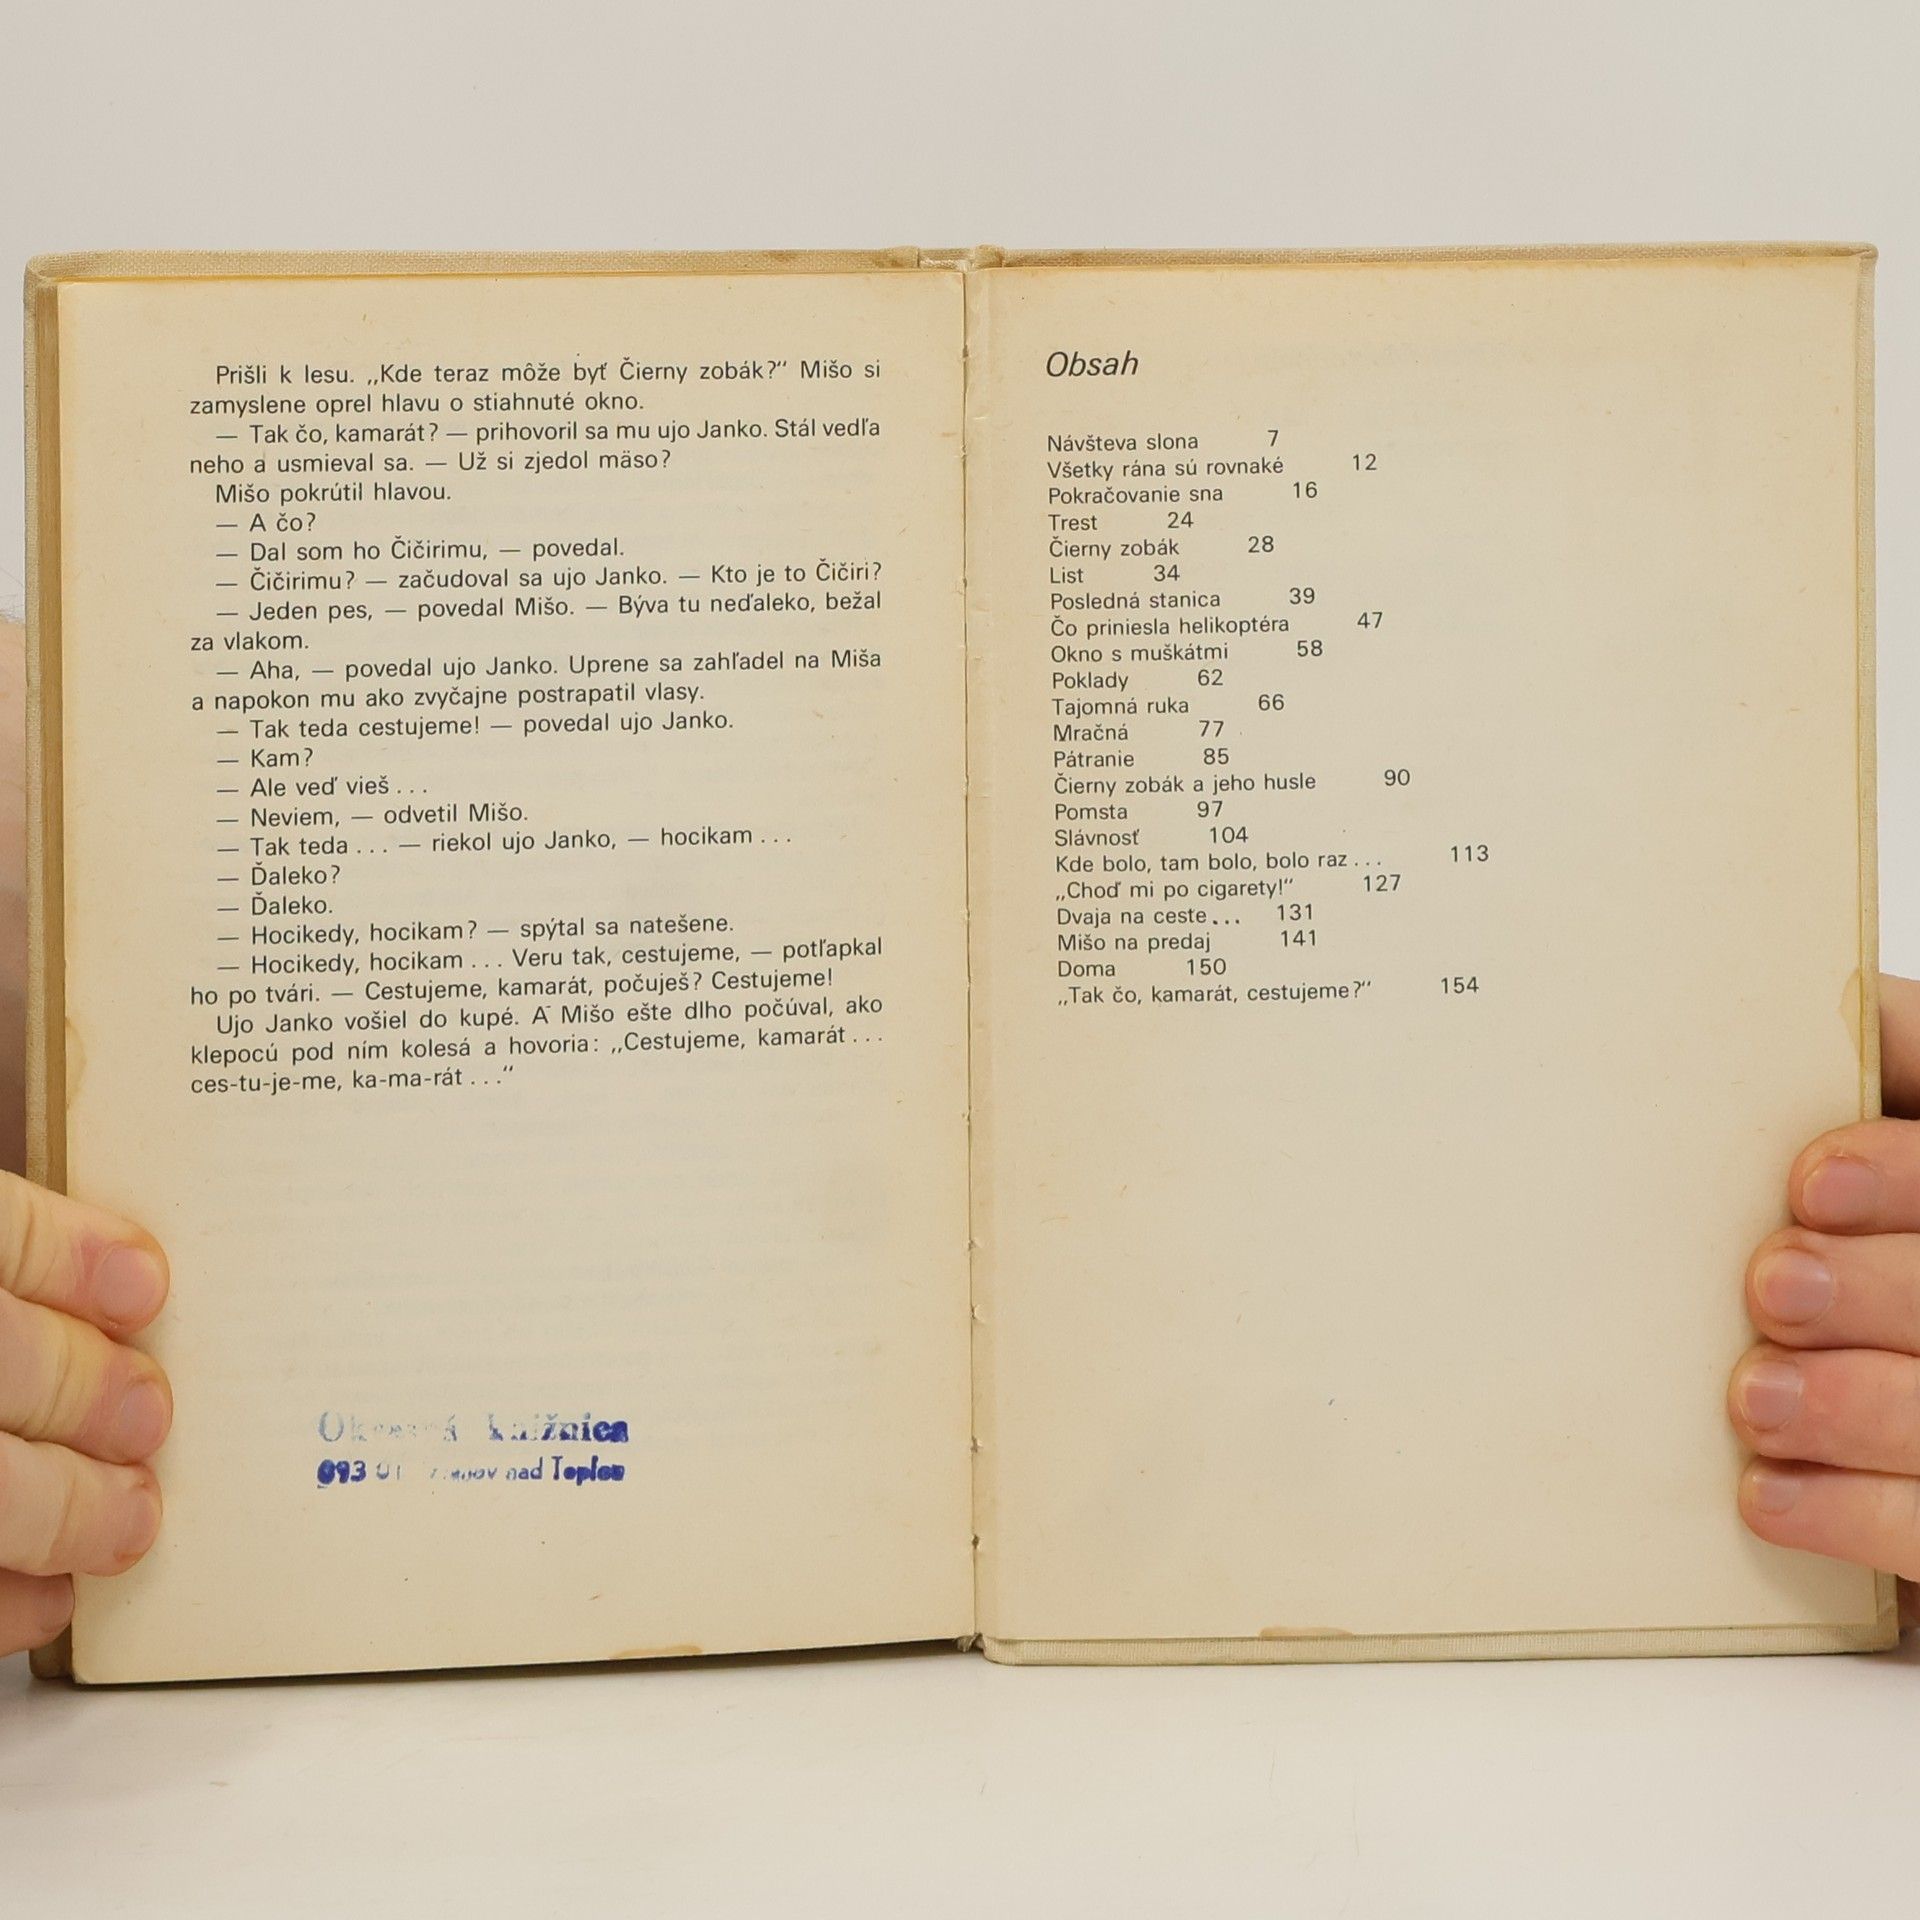 Prišli k lesu. „Kde teraz môže byť Čierny zobák?“ Mišo si
zamyslene oprel hlavu o stiahnuté okno.
— Tak čo, kamarát? — prihovoril sa mu ujo Janko. Stál vedľa
neho a usmieval sa. — Už si zjedol mäso?
Mišo pokrútil hlavou.
— A čo?
— Dal som ho Čičirimu, — povedal.
— Čičirimu? — začudoval sa ujo Janko. — Kto je to Čičiri?
— Jeden pes, — povedal Mišo. — Býva tu neďaleko, bežal
za vlakom.
— Aha, — povedal ujo Janko. Uprene sa zahľadel na Miša
a napokon mu ako zvyčajne postrapatil vlasy.
— Tak teda cestujeme! — povedal ujo Janko.
— Kam?
— Ale veď vieš . . .
— Neviem, — odvetil Mišo.
— Tak teda . . . — riekol ujo Janko, — hocikam . . .
— Ďaleko?
— Ďaleko.
— Hocikedy, hocikam? — spýtal sa natešene.
— Hocikedy, hocikam . . . Veru tak, cestujeme, — potľapkal
ho po tvári. — Cestujeme, kamarát, počuješ? Cestujeme!
Ujo Janko vošiel do kupé. A Mišo ešte dlho počúval, ako
klepocú pod ním kolesá a hovoria: „Cestujeme, kamarát . . .
ces-tu-je-me, ka-ma-rát . . .“
knižnica
093 nad Topľou
Obsah
Návšteva slona 7
Všetky rána sú rovnaké 12
Pokračovanie sna 16
Trest 24
Čierny zobák 28
List 34
Posledná stanica 39
Čo priniesla helikoptéra 47
Okno s muškátmi 58
Poklady 62
Tajomná ruka 66
Mračná 77
Pátranie 85
Čierny zobák a jeho husle 90
Pomsta 97
Slávnosť 104
Kde bolo, tam bolo, bolo raz . . . 113
„Choď mi po cigarety!“ 127
Dvaja na ceste . . . 131
Mišo na predaj 141
Doma 150
„Tak čo, kamarát, cestujeme?“ 154